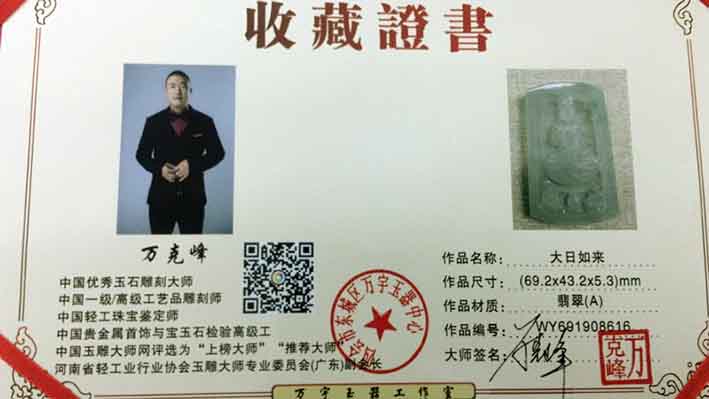 收藏證書
万克峰
中国优秀玉石雕刻大师
中国一级/高级工艺品雕刻师
中国轻工珠宝鉴定师
中国贵金属首饰与宝玉石检验高级工
中国玉雕大师网评选为“上榜大师”“推荐大师”
河南省轻工业行业协会玉雕大师专业委员会(广东)副会长
作品名称：大日如来
作品尺寸：(69.2x43.2x5.3)mm
作品材质：翡翠(A)
作品编号：WY691908616
大师签名：万克峰
万克峰
四会市东城区万宇玉器中心
万宇玉器工作室